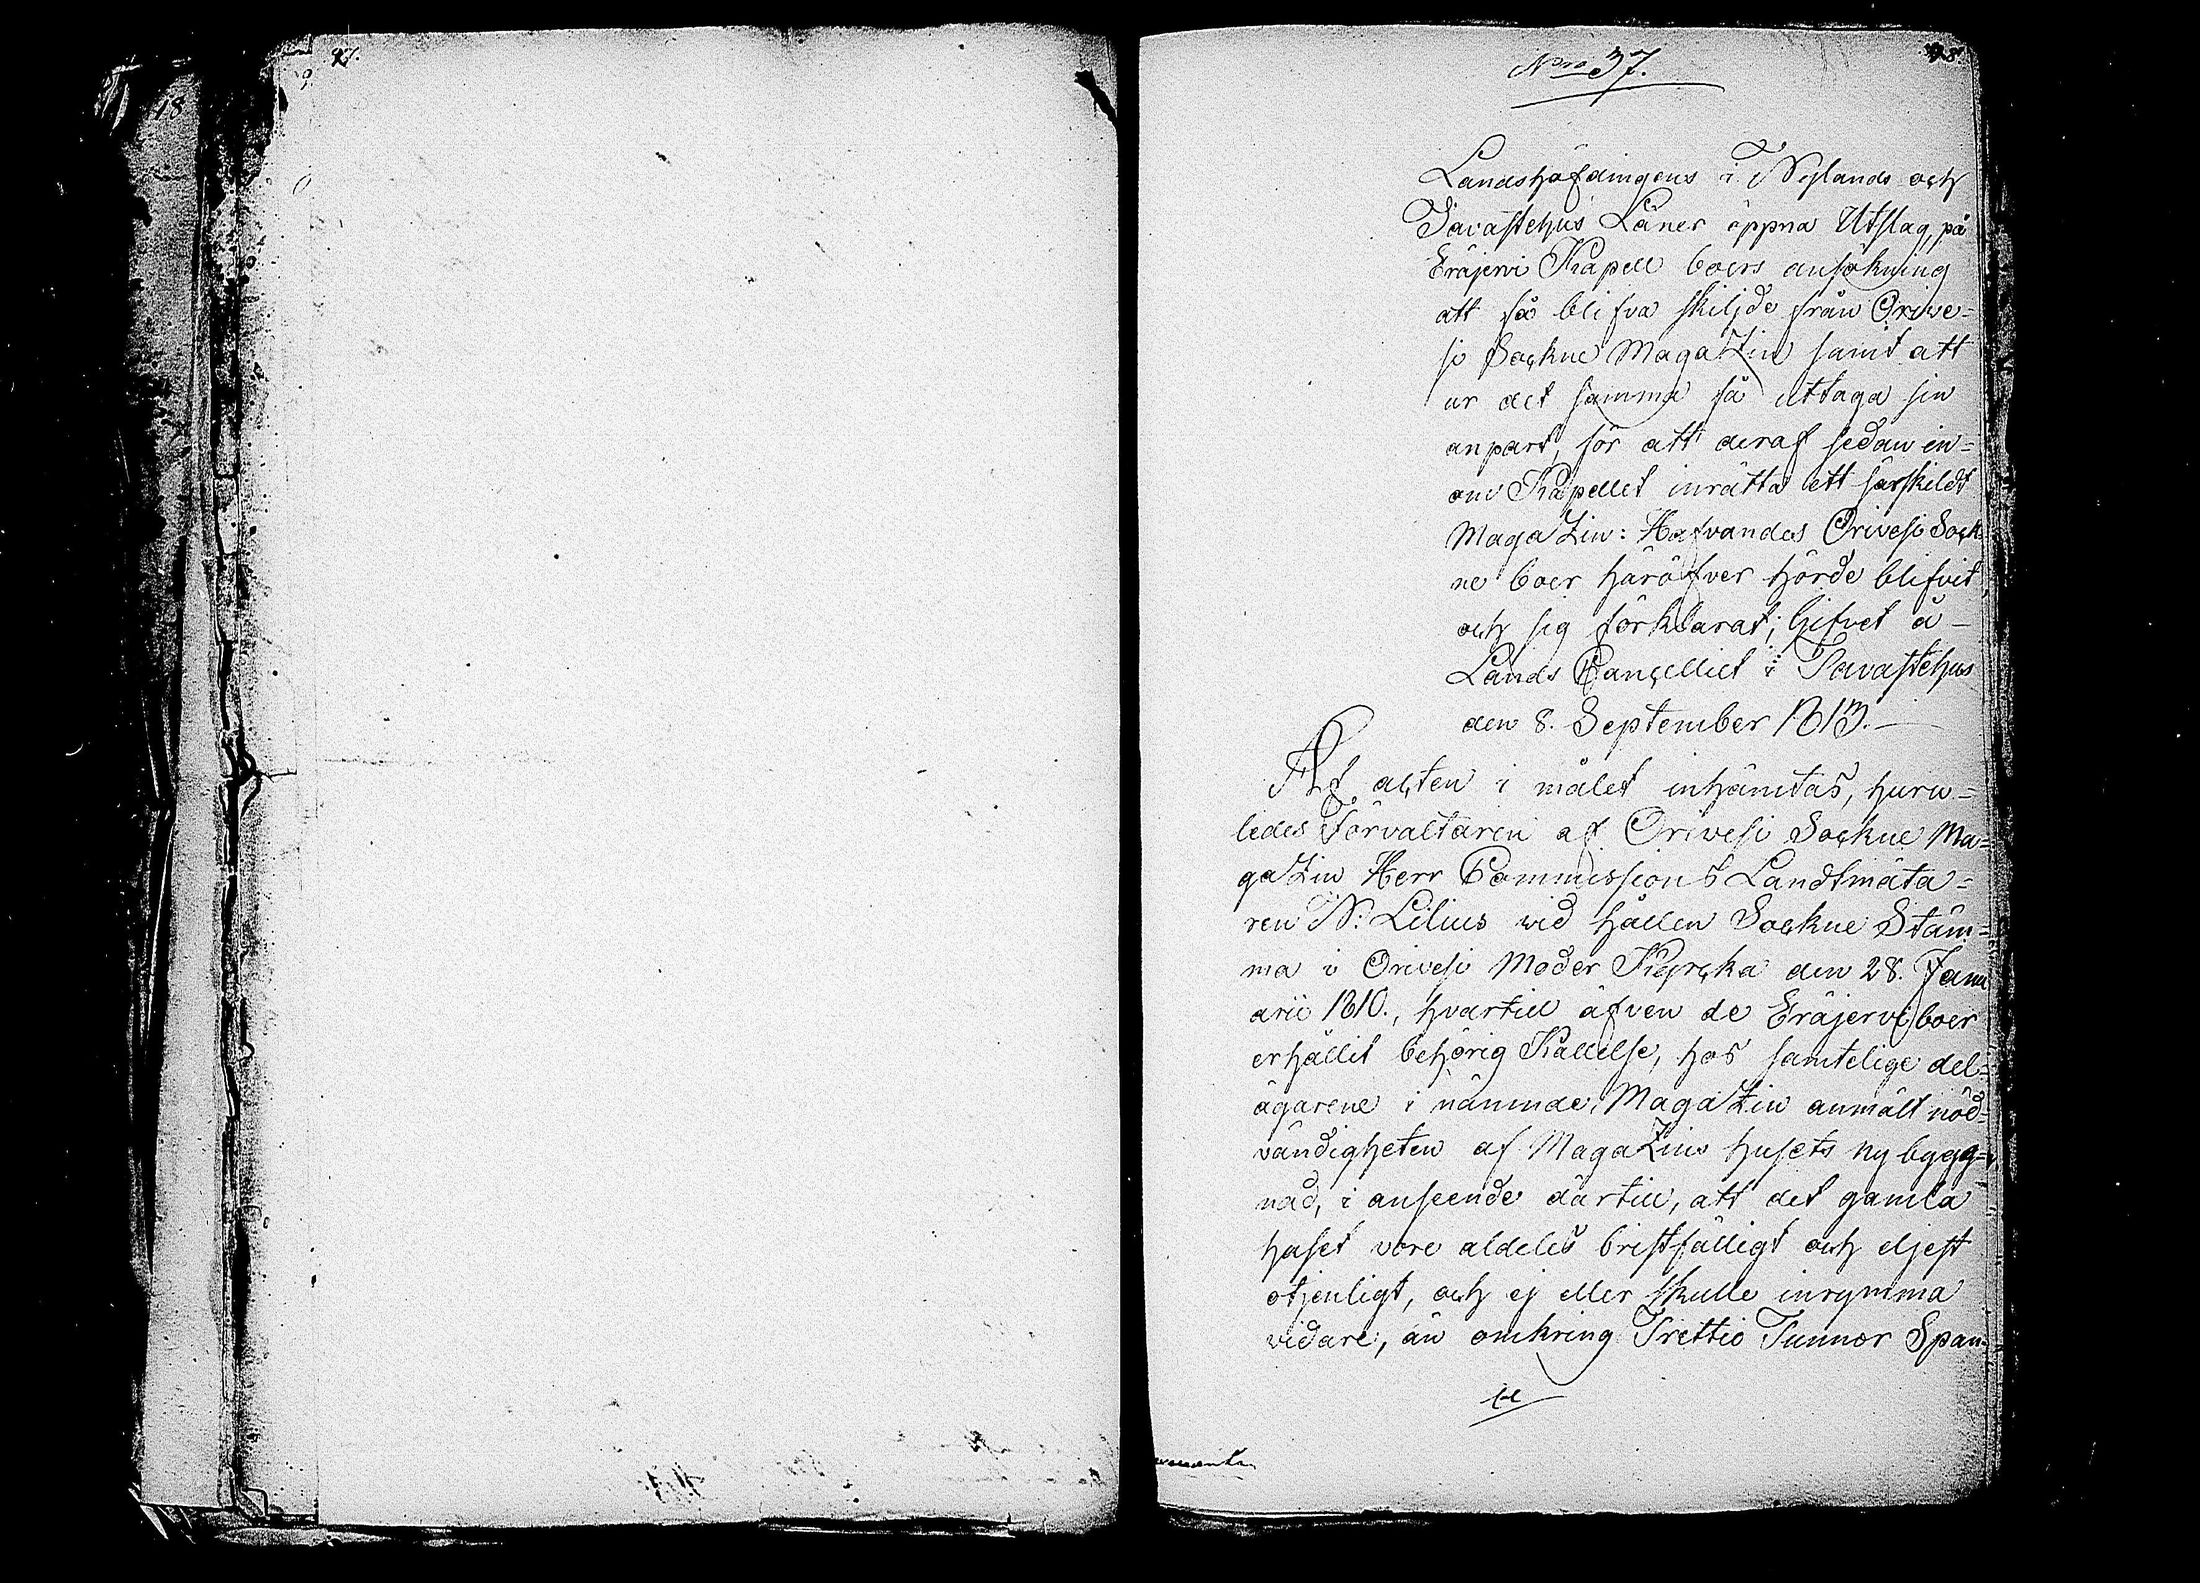 97.
18
98.
Nro 37.
Landshöfdingens i Nylands och
Tavastehus Läner öppna Utslag, på
Eräjervi Kapell boers ansökning
att få blifva skiljde från Orive-
si Sockne MagaZin samt att
ur det samma få uttaga sin
anpart, för att deraf sedan in-
om Kapellet inrätta ett särskildt
MagaZin: Hafvandes Orivesi Sock-
ne boer häröfver hörde blifvit,
och sig förklarat; Gifvet å
Lands Cancelliet i Tavastehus
den 8. September 1813.
Af acten i målet inhämtas, huru-
ledes Förvaltaren af Orivesi Sockne Ma-
gaZin Herr Commissions Landtmäta-
ren N: Lilius vid hållen Sockne Stäm-
ma i Orivesi Moder Kyrcka den 28. Janu
arii 1810., hvartill äfven de Eräjervi boer
erhållit behörig Kallelse, hos samtelige del-
ägarene i nämnde MagaZin anmält nöd-
vändigheten af MagaZins husets ny bygg-
nad, i anseende därtill, att det gamla
huset vore aldeles bristfälligt och eljest
otjenligt, och ej eller skulle inrymma
vidare, än omkring Trettio Tunnor Span-